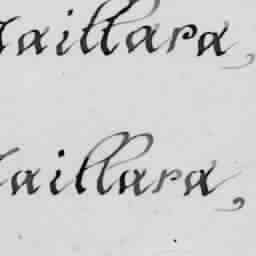 aillara,
aillara,